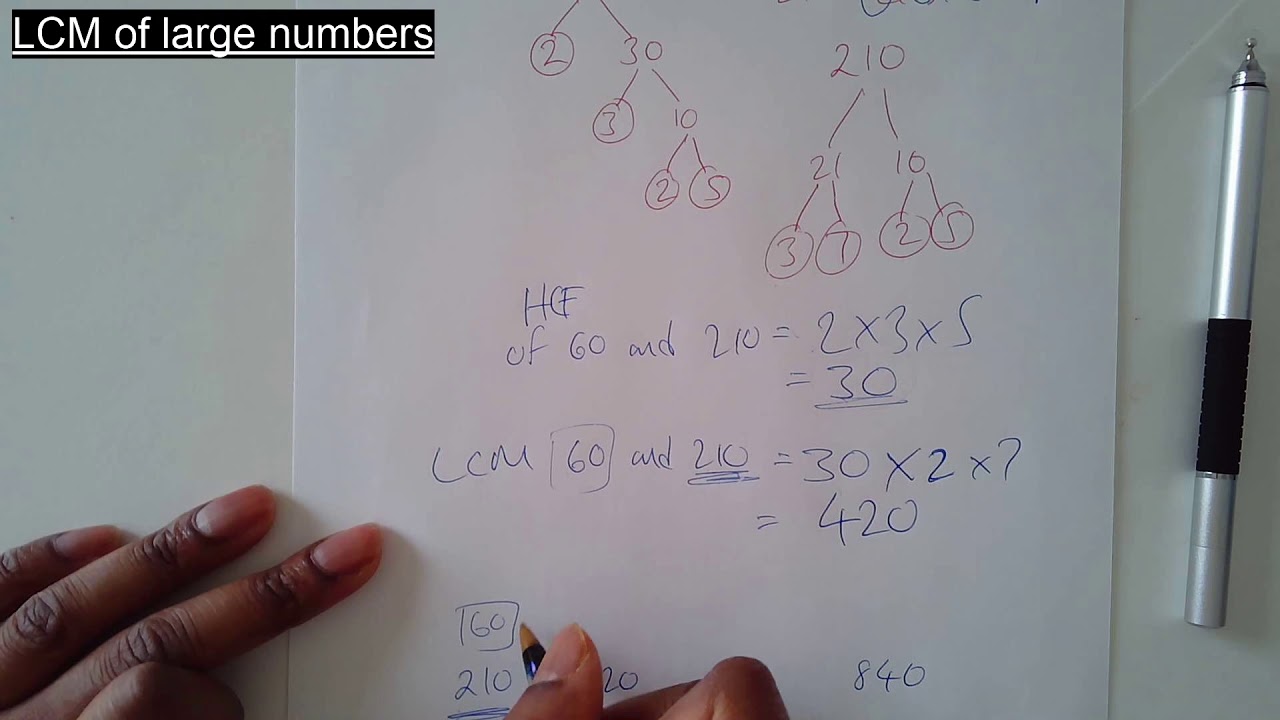 LCM of large numbers
2 30
3 10
2 5
210
21 10
3 7 2 5
HCF
of 60 and 210 = 2 x 3 x 5
= 30
LCM 60 and 210 = 30 x 2 x 7
= 420
60
210 20 840